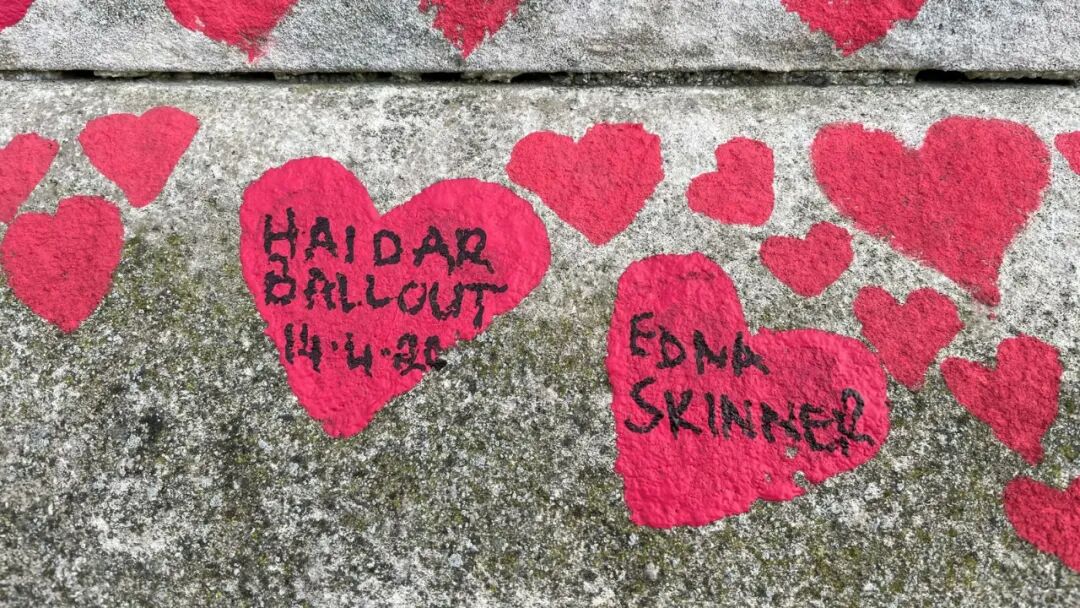 HAIDAR
BALLOUT
14.4.20
EDNA
SKINNER